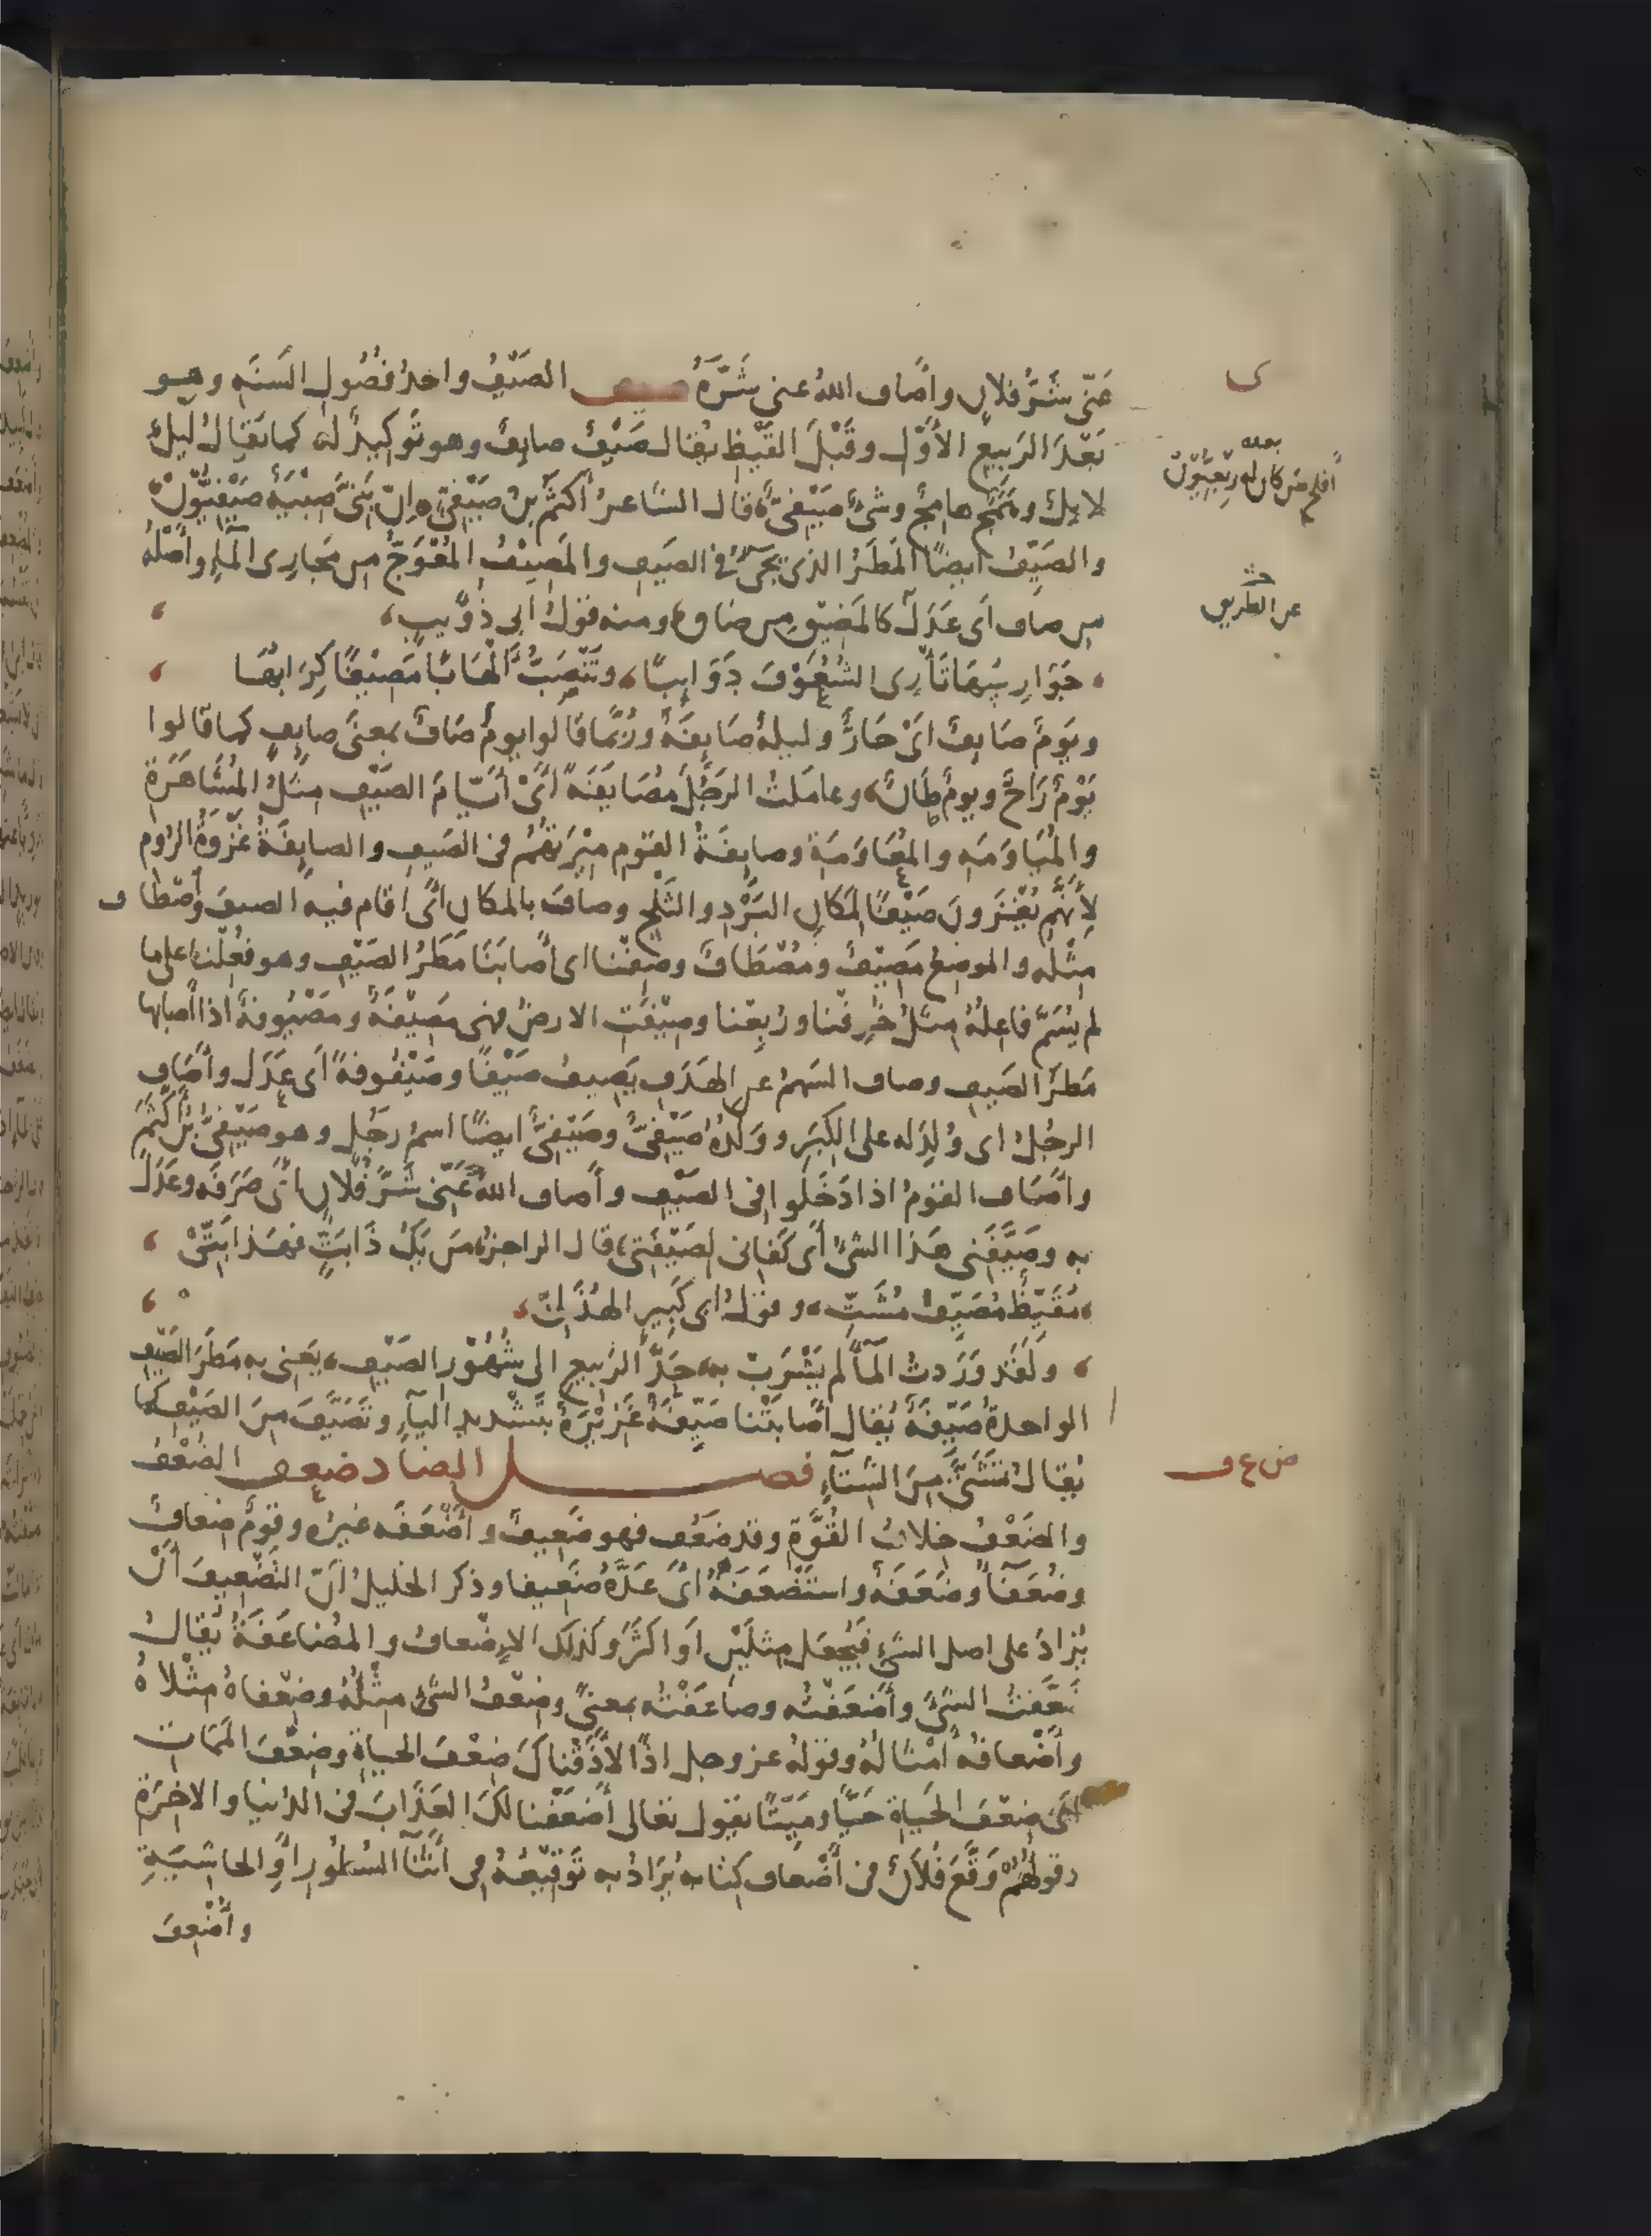 عَنّى شَرَّ فلانٍ واَصاف اللهُ عنى شَرَّهُ صيف الصَيْفُ واحدُ فُصُولِ السَنَةِ وهو
ى
بَعْدَ الرَبيعِ الأوّل وقَبْلَ القَيْظِ يُقال صَيْفٌ صايفٌ وهو توكيدٌ له كما يقال ليلٌ
لايِلٌ وهَمَجٌ هامِجٌ وشىءٌ صَيْفىٌّ قال الشاعرُ أكثمُ بنُ صَيْفِىٍّ إنّ بَنِىَّ صِبْيَةٌ صَيْفِيُّونْ
بعده
أفلح من كان له رِبْعِيُّونْ
والصَيِّفُ ايضًا المَطَرُ الذى يجىءُ فى الصَيفِ والمَصِيفُ المُعْوَجُّ من مَجارى المآءِ وأصْلُهُ
مِن صاف أى عَدَلَ كالمَضيقِ من ضاق ومنه قولُ أبى ذُؤيبٍ
عن الطريق
جَوَارِسُها تأرِى الشُعُوفَ دَوَائِبًا وتَنْصَبُّ ألهابًا مَصِيفًا كِرابُها
ويَومٌ صايفٌ اىْ حَارٌّ وليلةٌ صَايِفَةٌ ورُبّما قالوا يومٌ صَافٌ بمعنى صايفٍ كما قالوا
يَوْمٌ رَاحٌ ويومٌ طَانٌ وعاملتُ الرَجُلَ مُصَايَفَةً اىْ أيّامَ الصَيْفِ مثلُ المُشَاهَرَةِ
والمُيَاوَمَه والمُعَاوَمَةِ وصايفَةُ القومِ مِيْرَتُهُم فى الصَيفِ والصايِفَةُ غَزْوَةُ الرُوم
لِأنّهم يُغْزَونَ صَيْفًا لمَكانِ البَرْدِ والثَلْجِ وصافَ بالمكانِ أى اقام فيه الصيفَ واَصْطاف
مثلُه والموضعُ مَصِيْفٌ ومُصْطَافٌ وصِفْنا اى أصابَنَا مَطَرُ الصَيْفِ وهو فُعِلْنا على ما
لم يُسَمَّ فاعِلُهُ مثلُ خُرِفْنا ورُبِعْنا وصِيْفَتِ الارضُ فهى مَصِيْفَةٌ ومَصْيُوفةٌ اذا أصابها
مَطَرُ الصَيفِ وصاف السَهمُ عن الهَدَفِ يَصيفُ صَيْفًا وصَيْفُوفةً أى عَدَل وأصَاف
الرجُلُ اى وُلِدَ له على الكِبَرِ ووَلَدُهُ صَيْفِىٌّ وصَيْفِىٌّ ايضًا اسمُ رَجُلٍ وهو صَيْفِىُّ بْنُ أكْثَمَ
واَصَاف القومُ اذا دَخَلُوا فى الصَيْفِ وأصاف اللهُ عَنّى شَرَّ فُلانٍ أىْ صَرَفَه وعَدَلَ
به وصَيَّفَنى هَذا الشىءُ أى كَفانى لِصَيْفَتى قال الراجزُ مَن يَكُ ذَا بَتٍّ فهَذا بَتّىْ
مُقَيِّظٌ مُصَيِّفٌ مُشَتّى وقولُ ابى كَبيرٍ الهُذَلىّ
ولَقَد وَرَدتُ المآءَ لم يَشْرَبْ به حَدَّ الرَبيعِ الى شُهُوْرِ الصَيِّفِ يَعنى به مَطَرَ الصَيْفِ
الواحدةُ صَيِّفَةٌ يُقال أصابَتْنا صَيِّفَةٌ غَزِيْرَةٌ بتَشْديدِ اليآءِ وتَصَيَّفَ مِنَ الصَيْفِ كما
يُقالُ تَشَتَّى مِنَ الشِتآءِ فصل الضاد ضعف الضُعْفُ
ض ع ف
والضَعْفُ خلافُ القُوّةِ وقد ضَعُف فهو ضَعِيفٌ واَضْعَفَه غيرُه وقومٌ ضعافٌ
وضُعَفآءُ وضَعَفَةٌ واستَضْعَفَهُ أىْ عَدَّهُ ضَعِيفا وذكر الخليلُ أنّ التَضْعِيفَ أنْ
يُزادَ على اصل الشىءِ فيُجْعَل مِثلَيْنِ اَو اكثَرَ وكذلك الاِضْعافُ والمُضَاعَفَةُ يُقالُ
ضَعَّفتُ الشىءَ وأَضْعَفْتُه وضاعَفْتُه بمعنىً وضِعْفُ الشىءِ مِثْلُهُ وضِعْفاهُ مِثْلاهُ
وأَضْعافُهُ أمْثالُهُ وقولهُ عز وجل اذًا لأَذَقْناكَ ضِعْفَ الحياةِ وضِعْفَ المَمَاتِ
أى ضِعْفَ الحَياةِ حَيًّا ومَيِّتًا يقول تعالى أَضْعَفْنا لَكَ العَذَابَ فى الدنيا والاخِرَةِ
وقولُهُمْ وَقَّعَ فُلانٌ فى أَضْعافِ كِتابه يُرَادُ به تَوْقِيْعُهُ فى أثْنآءِ السُطُورِ أوِ الحاشِيَةِ
وأُضْعِفَ